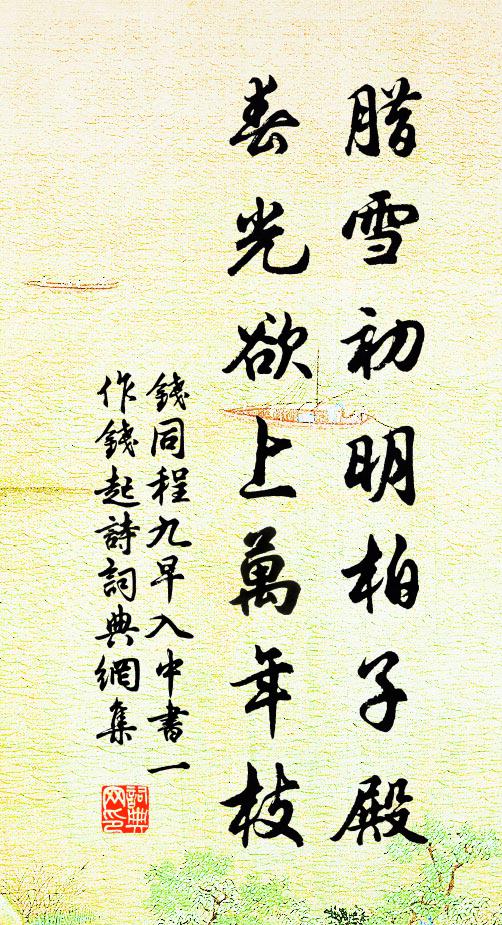 腊雪初明柏子殿
春光欲上萬年枝
錢同程九早入中書一
作錢起詩詞典網集
詞典
网印